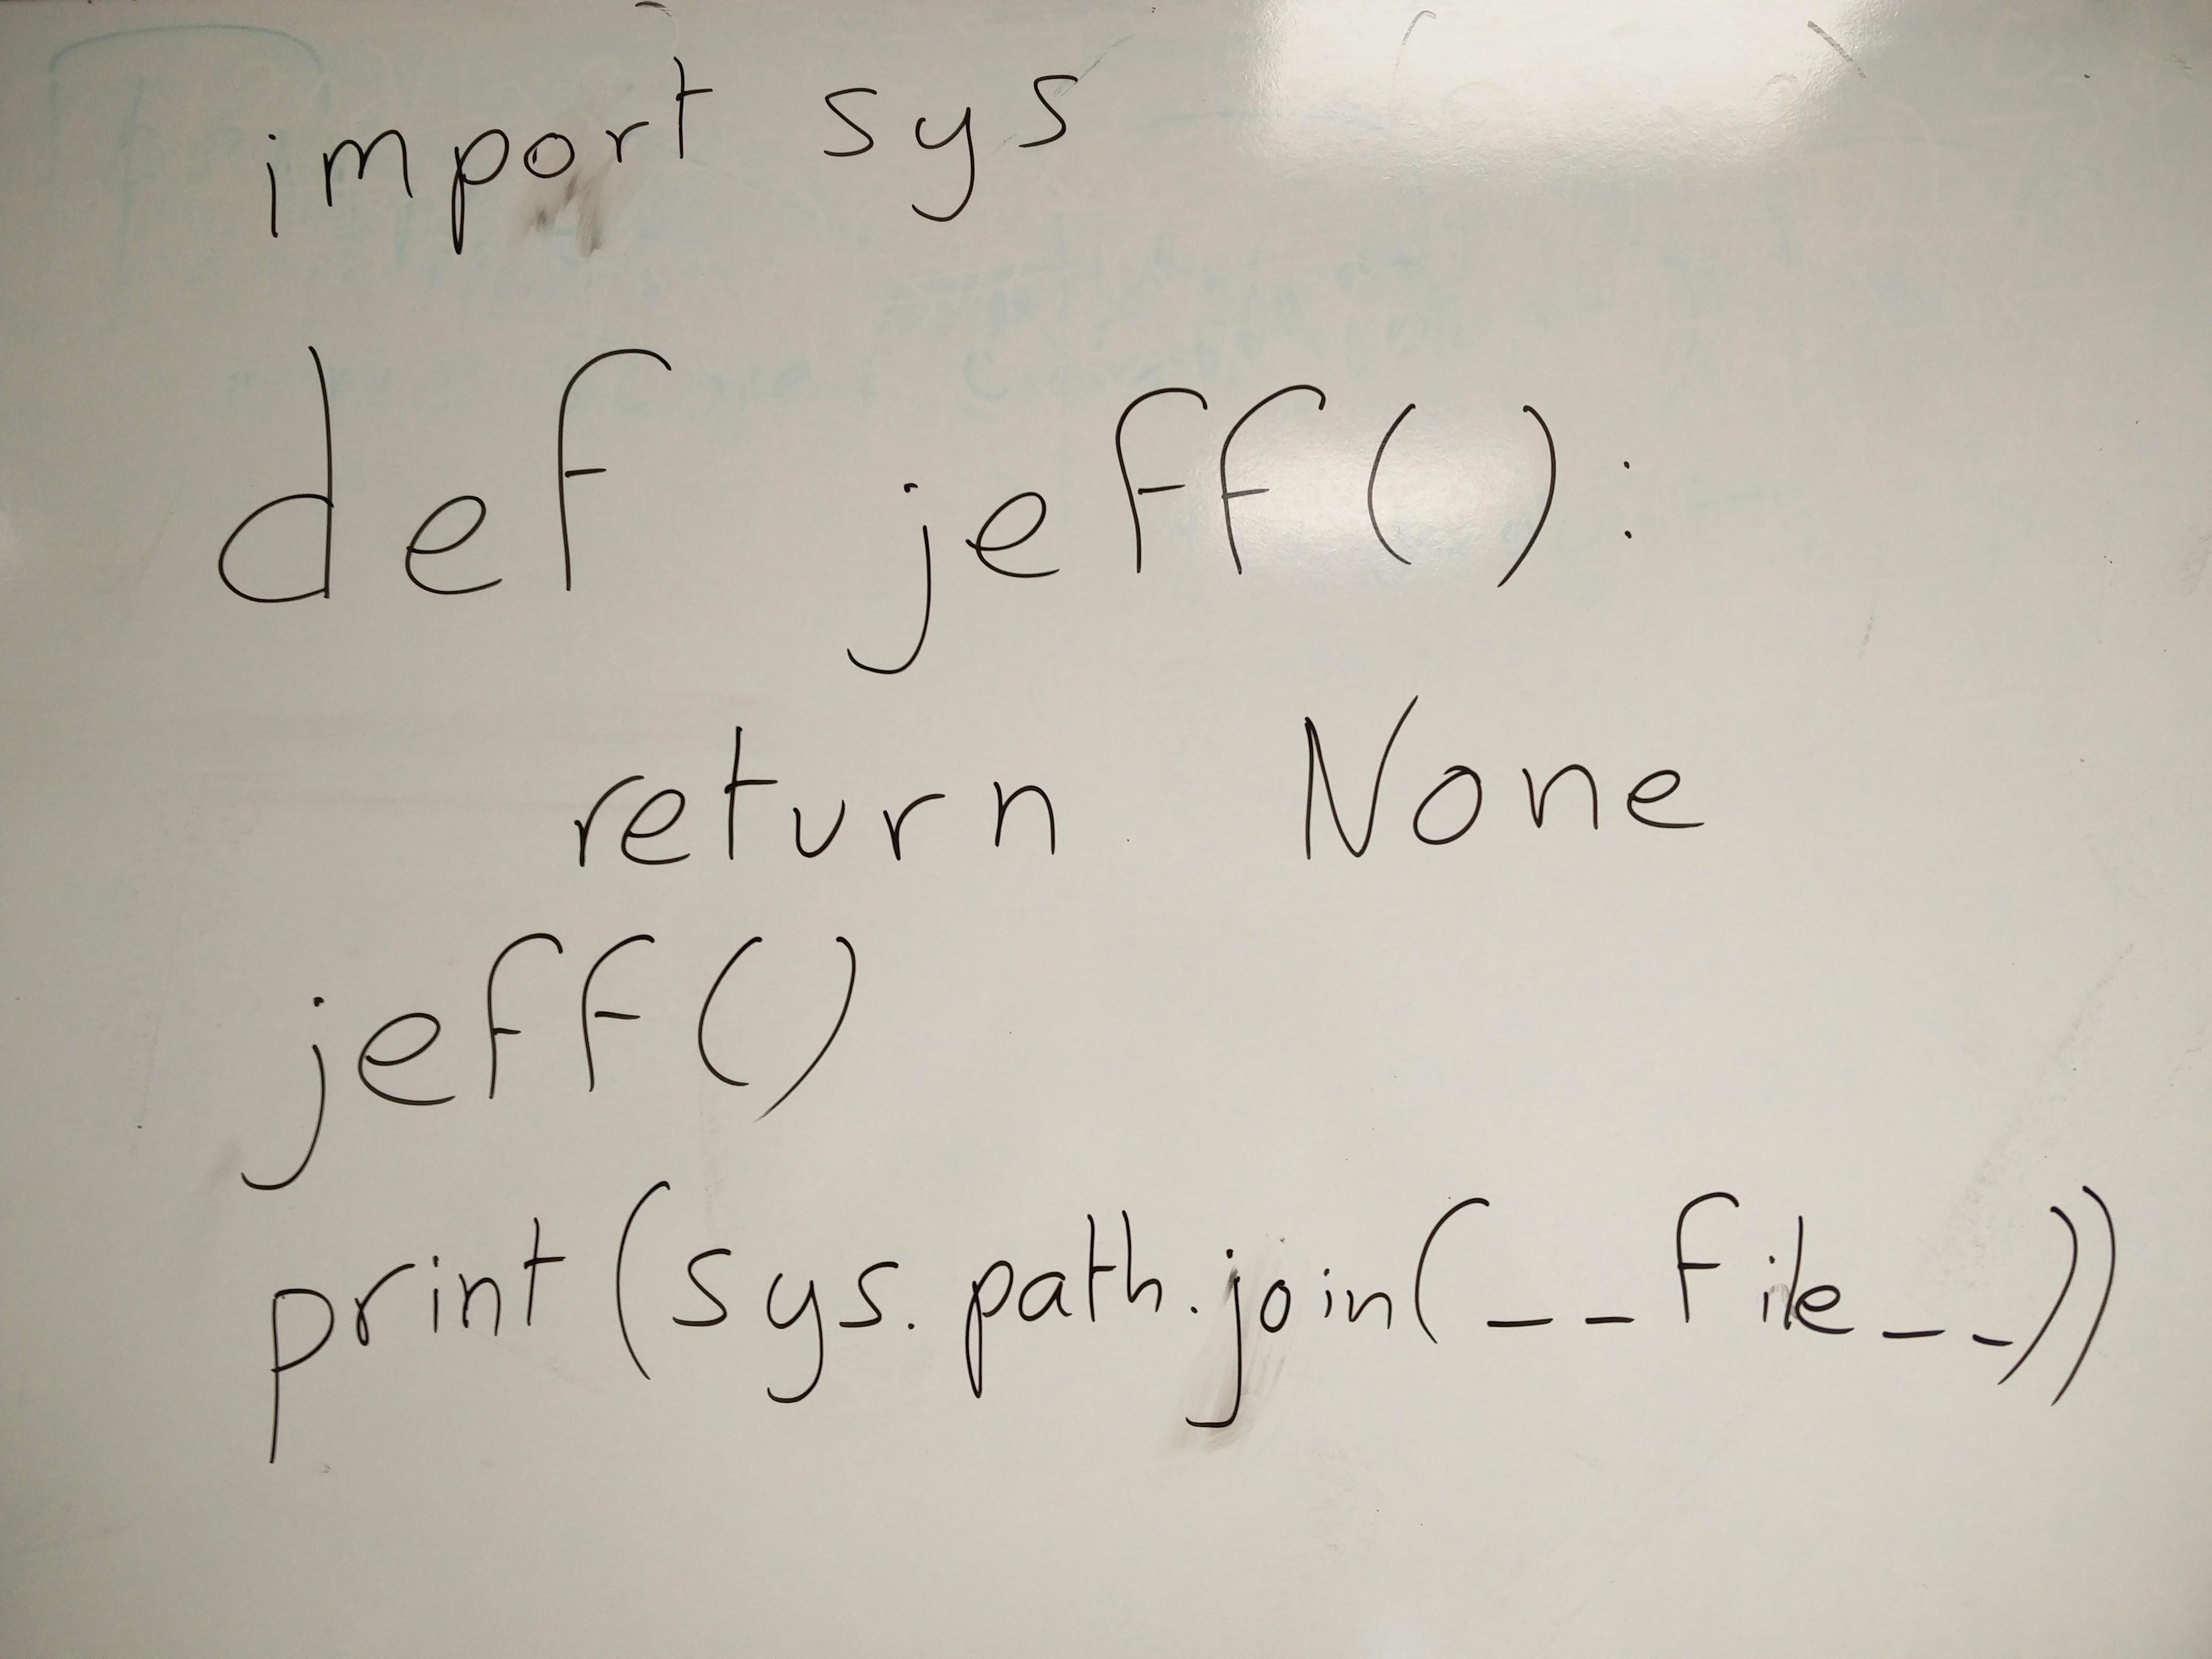 import sys
def jeff():
    return None
jeff()
print(sys.path.join(__file__))